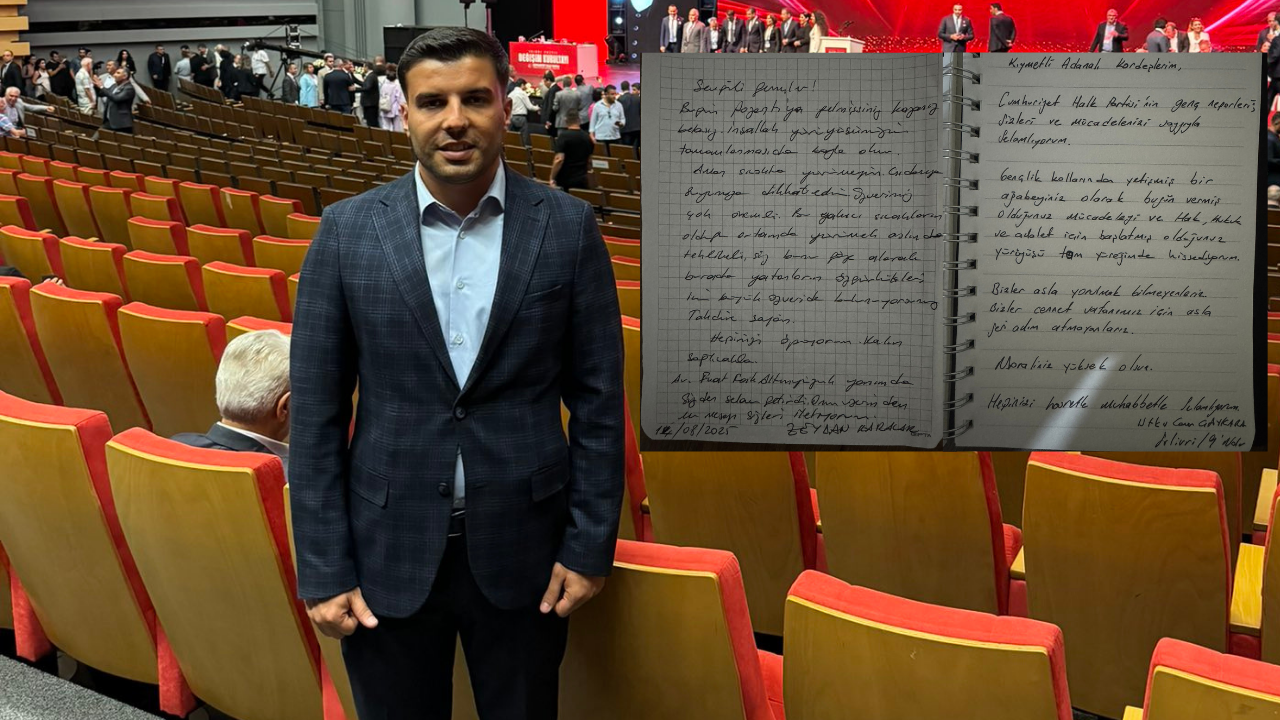 DEĞİŞİM KURULTAYI
Sevgili gençler!
Bugün Pozantı'ya gelmişsiniz kazasız
belasız. İnşallah yürüyüşünüzün
tamamlanmasıda böyle olur.
Aman sıcakta
dikkat edin
çok önemli. Bu yakıcı sıcakların
olduğu ortamda yürümek aslında
tehlikeli, siz bunu göze alarak
burada yatanların özgürlükleri
için büyük özveride bulunuyorsunuz
Takdire şayan.
Hepinizi öpüyorum. Kalın
sağlıcakla.
Av. yanımda
Sizden selam getirdi. Onun üzerinden
bu mesajı sizlere iletiyorum
12/08/2025 ZEYDAN KARALAR
Kıymetli Adanalı Kardeşlerim,
Cumhuriyet Halk Partisi'nin genç neferleri,
Sizleri ve mücadelenizi saygıyla
Selamlıyorum.
Gençlik kollarından yetişmiş bir
ağabeyiniz olarak bugün vermiş
olduğunuz mücadeleyi ve Hak, Hukuk
ve adalet için başlatmış olduğunuz
yürüyüşü tam yüreğimde hissediyorum.
Bizler asla yorulmak bilmeyenleriz.
Bizler cennet vatanımız için asla
geri adım atmayanlarız.
Moraliniz yüksek olsun.
Hepinizi hasretle muhabbetle Selamlıyorum.
Utku Caner ÇAYKARA
Silivri/9 Nolu